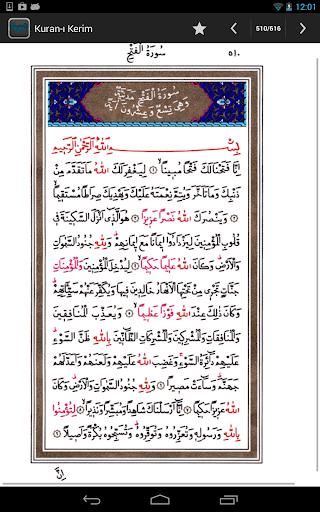 12:01
Kuran-ı Kerim
510/616
سُورَةُ الْفَتْحِ ٥١٠
سُورَةُ الْفَتْحِ مَدَنِيَّةٌ
وَهِيَ تِسْعٌ وَعِشْرُونَ اٰيَةً
بِسْمِ اللّٰهِ الرَّحْمٰنِ الرَّحِيمِ
اِنَّا فَتَحْنَا لَكَ فَتْحًا مُبِينًا ١ لِيَغْفِرَ لَكَ اللّٰهُ مَا تَقَدَّمَ مِنْ
ذَنْبِكَ وَمَا تَاَخَّرَ وَيُتِمَّ نِعْمَتَهُ عَلَيْكَ وَيَهْدِيَكَ صِرَاطًا مُسْتَقِيمًا ٢
وَيَنْصُرَكَ اللّٰهُ نَصْرًا عَزِيزًا ٣ هُوَ الَّذِى اَنْزَلَ السَّكِينَةَ فِى
قُلُوبِ الْمُؤْمِنِينَ لِيَزْدَادُوا اِيمَانًا مَعَ اِيمَانِهِمْ وَلِلّٰهِ جُنُودُ السَّمٰوَاتِ
وَالْاَرْضِ وَكَانَ اللّٰهُ عَلِيمًا حَكِيمًا ٤ لِيُدْخِلَ الْمُؤْمِنِينَ وَالْمُؤْمِنَاتِ
جَنَّاتٍ تَجْرِى مِنْ تَحْتِهَا الْاَنْهَارُ خَالِدِينَ فِيهَا وَيُكَفِّرَ عَنْهُمْ سَيِّاٰتِهِمْ
وَكَانَ ذٰلِكَ عِنْدَ اللّٰهِ فَوْزًا عَظِيمًا ٥ وَيُعَذِّبَ الْمُنَافِقِينَ
وَالْمُنَافِقَاتِ وَالْمُشْرِكِينَ وَالْمُشْرِكَاتِ الظَّانِّينَ بِاللّٰهِ ظَنَّ السَّوْءِ
عَلَيْهِمْ دَائِرَةُ السَّوْءِ وَغَضِبَ اللّٰهُ عَلَيْهِمْ وَلَعَنَهُمْ وَاَعَدَّ لَهُمْ
جَهَنَّمَ وَسَاءَتْ مَصِيرًا ٦ وَلِلّٰهِ جُنُودُ السَّمٰوَاتِ وَالْاَرْضِ وَكَانَ
اللّٰهُ عَزِيزًا حَكِيمًا ٧ اِنَّا اَرْسَلْنَاكَ شَاهِدًا وَمُبَشِّرًا وَنَذِيرًا ٨ لِتُؤْمِنُوا
بِاللّٰهِ وَرَسُولِهِ وَتُعَزِّرُوهُ وَتُوَقِّرُوهُ وَتُسَبِّحُوهُ بُكْرَةً وَاَصِيلًا ٩
اِنَّ